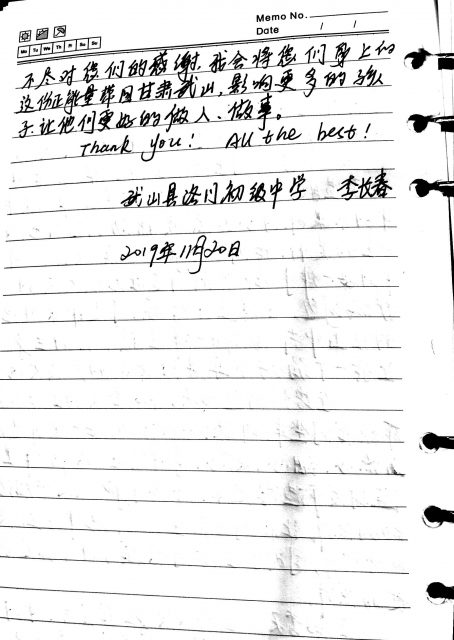 Memo No.
Date / /
Mo Tu We Th Fr Sa Su
不尽对您们的感谢.我会将您们身上的
这份正能量带回甘肃武山,影响更多的孩
子.让他们更好的做人、做事。
Thank you! All the best!
武山县洛门初级中学 李长春
2019年11月20日